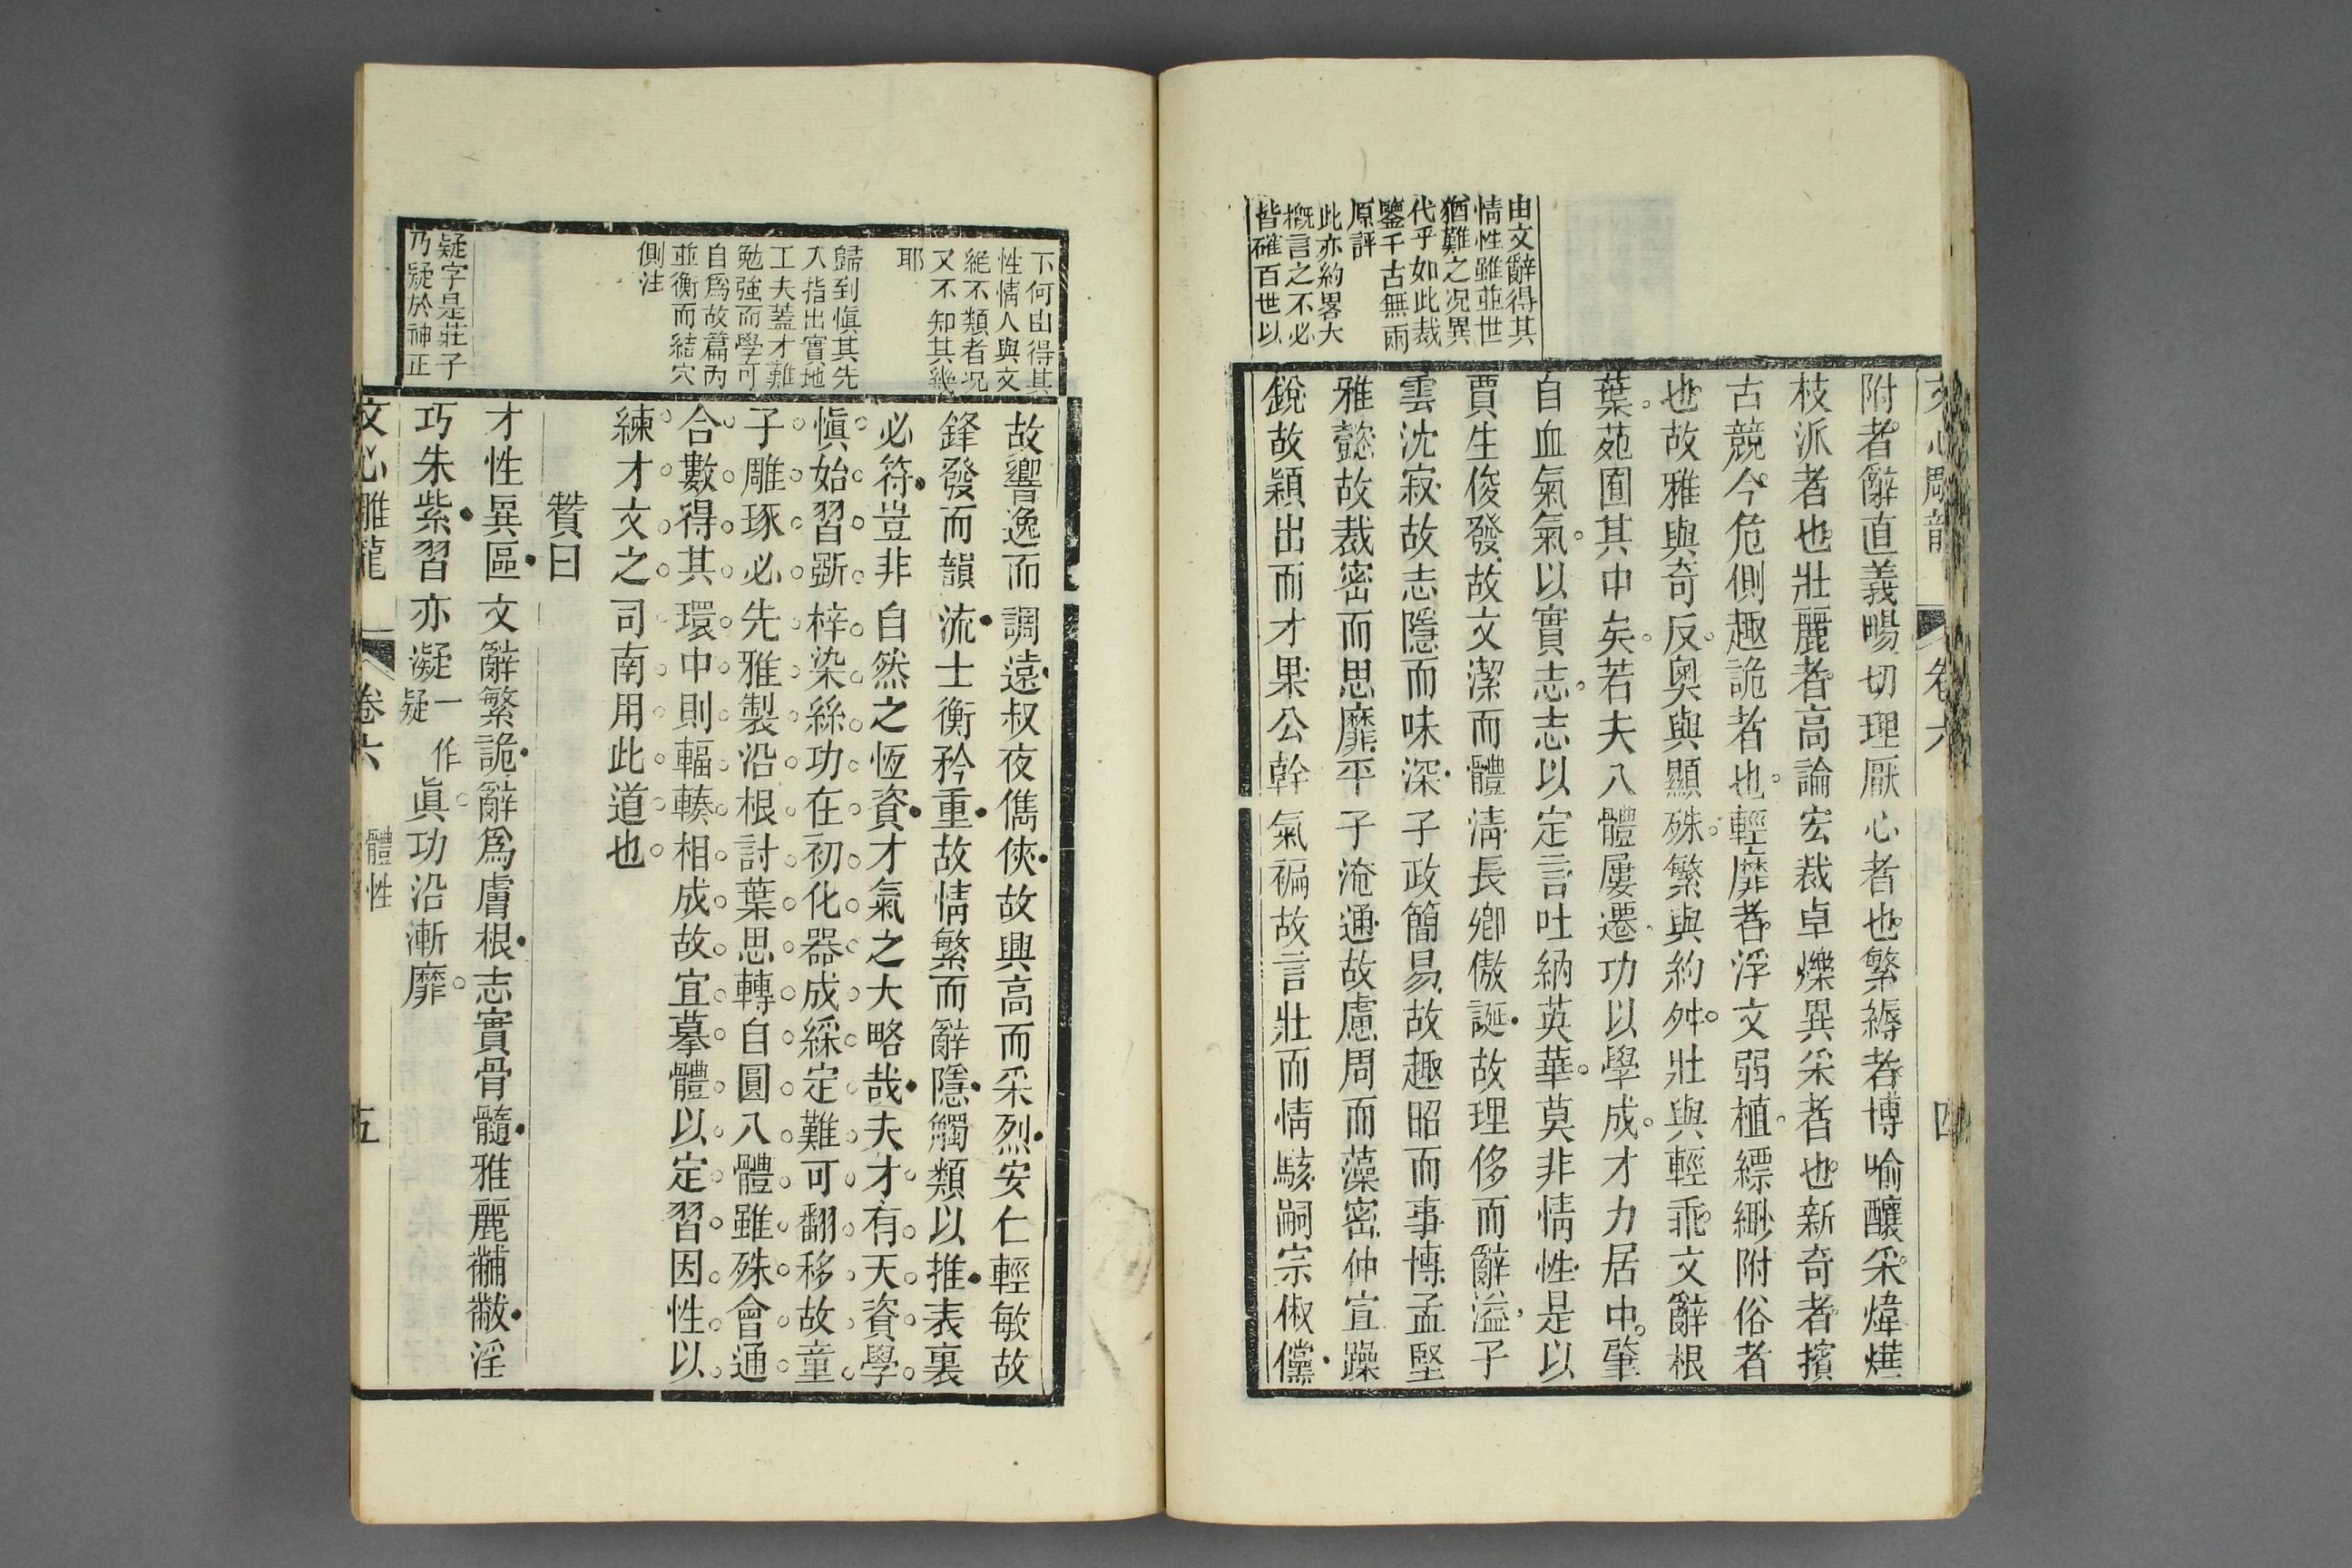 文心雕龍 卷六 四
由文辭得其
情性雖並世
猶難之况異
代乎如此裁
鑒千古無兩
原評
此亦約畧大
概言之不必
皆確百世以
附者辭直義暢切理厭心者也繁縟者博喻釀采煒燁
枝派者也壯麗者高論宏裁卓爍異采者也新奇者擯
古競今危側趣詭者也輕靡者浮文弱植縹緲附俗者
也故雅與奇反奧與顯殊繁與約舛壯與輕乖文辭根
葉苑囿其中矣若夫八體屢遷功以學成才力居中肇
自血氣氣以實志志以定言吐納英華莫非情性是以
賈生俊發故文潔而體清長卿傲誕故理侈而辭溢子
雲沈寂故志隱而味深子政簡易故趣昭而事博孟堅
雅懿故裁密而思靡平子淹通故慮周而藻密仲宣躁
銳故穎出而才果公幹氣褊故言壯而情駭嗣宗俶儻
下何由得其
性情人與文
絕不類者况
又不知其幾
耶
歸到慎其先
入指出實地
工夫蓋才難
勉強而學可
自爲故篇內
並衡而結穴
側注
疑字是莊子
乃疑於神正
故響逸而調遠叔夜儁俠故興高而采烈安仁輕敏故
鋒發而韻流士衡矜重故情繁而辭隱觸類以推表裏
必符豈非自然之恆資才氣之大略哉夫才有天資學
愼始習斲梓染絲功在初化器成綵定難可翻移故童
子雕琢必先雅製沿根討葉思轉自圓八體雖殊會通
合數得其環中則輻輳相成故宜摹體以定習因性以
練才文之司南用此道也
贊曰
才性異區文辭繁詭辭爲膚根志實骨髓雅麗黼黻淫
巧朱紫習亦凝一作疑眞功沿漸靡
文心雕龍 卷六 體性 五